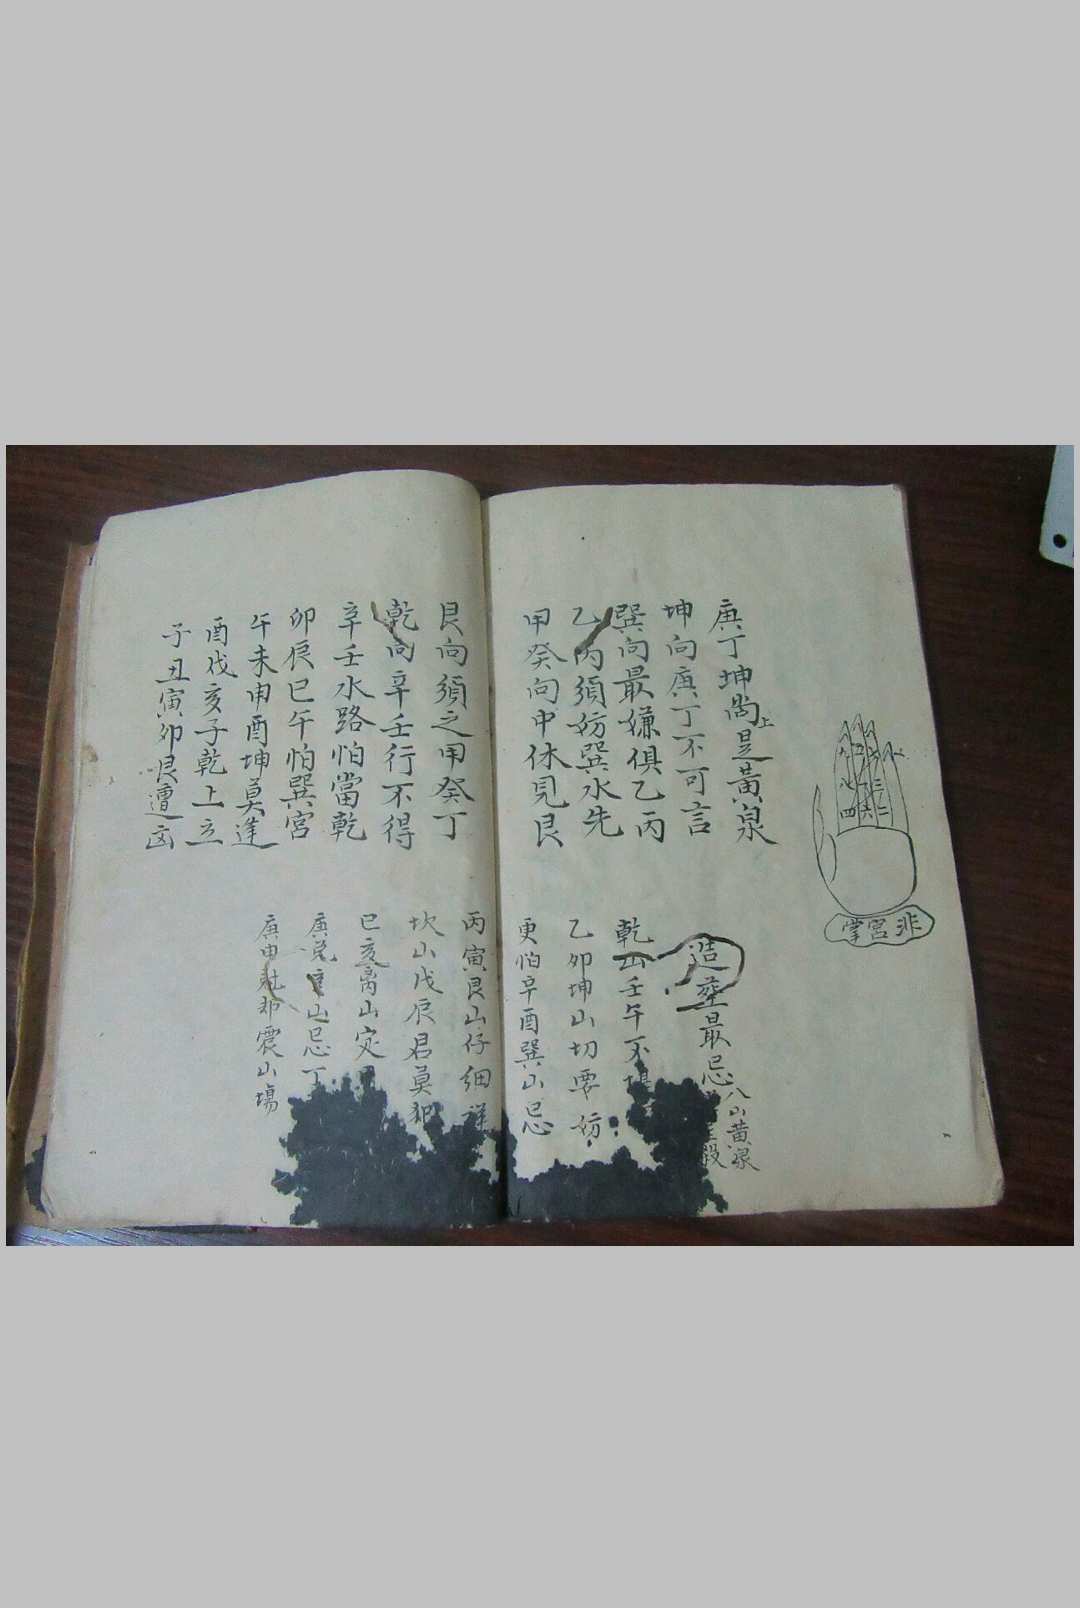 非宮掌
庚丁坤向上是黃泉
坤向庚丁不可言
巽向最嫌俱乙丙
乙丙須妨巽水先
甲癸向中休見艮
造塟最忌八山黃泉
殺
乾山壬午不
乙卯坤山切要妨
更怕辛酉巽山忌
艮向須之甲癸丁
乾向辛壬行不得
辛壬水路怕當乾
卯辰巳午怕巽宮
午未申酉坤莫逢
酉戌亥子乾上立
子丑寅卯艮遭凶
丙寅艮山仔細詳
坎山戊辰君莫犯
巳亥离山灾
庚 山忌丁
庚申 震山塲